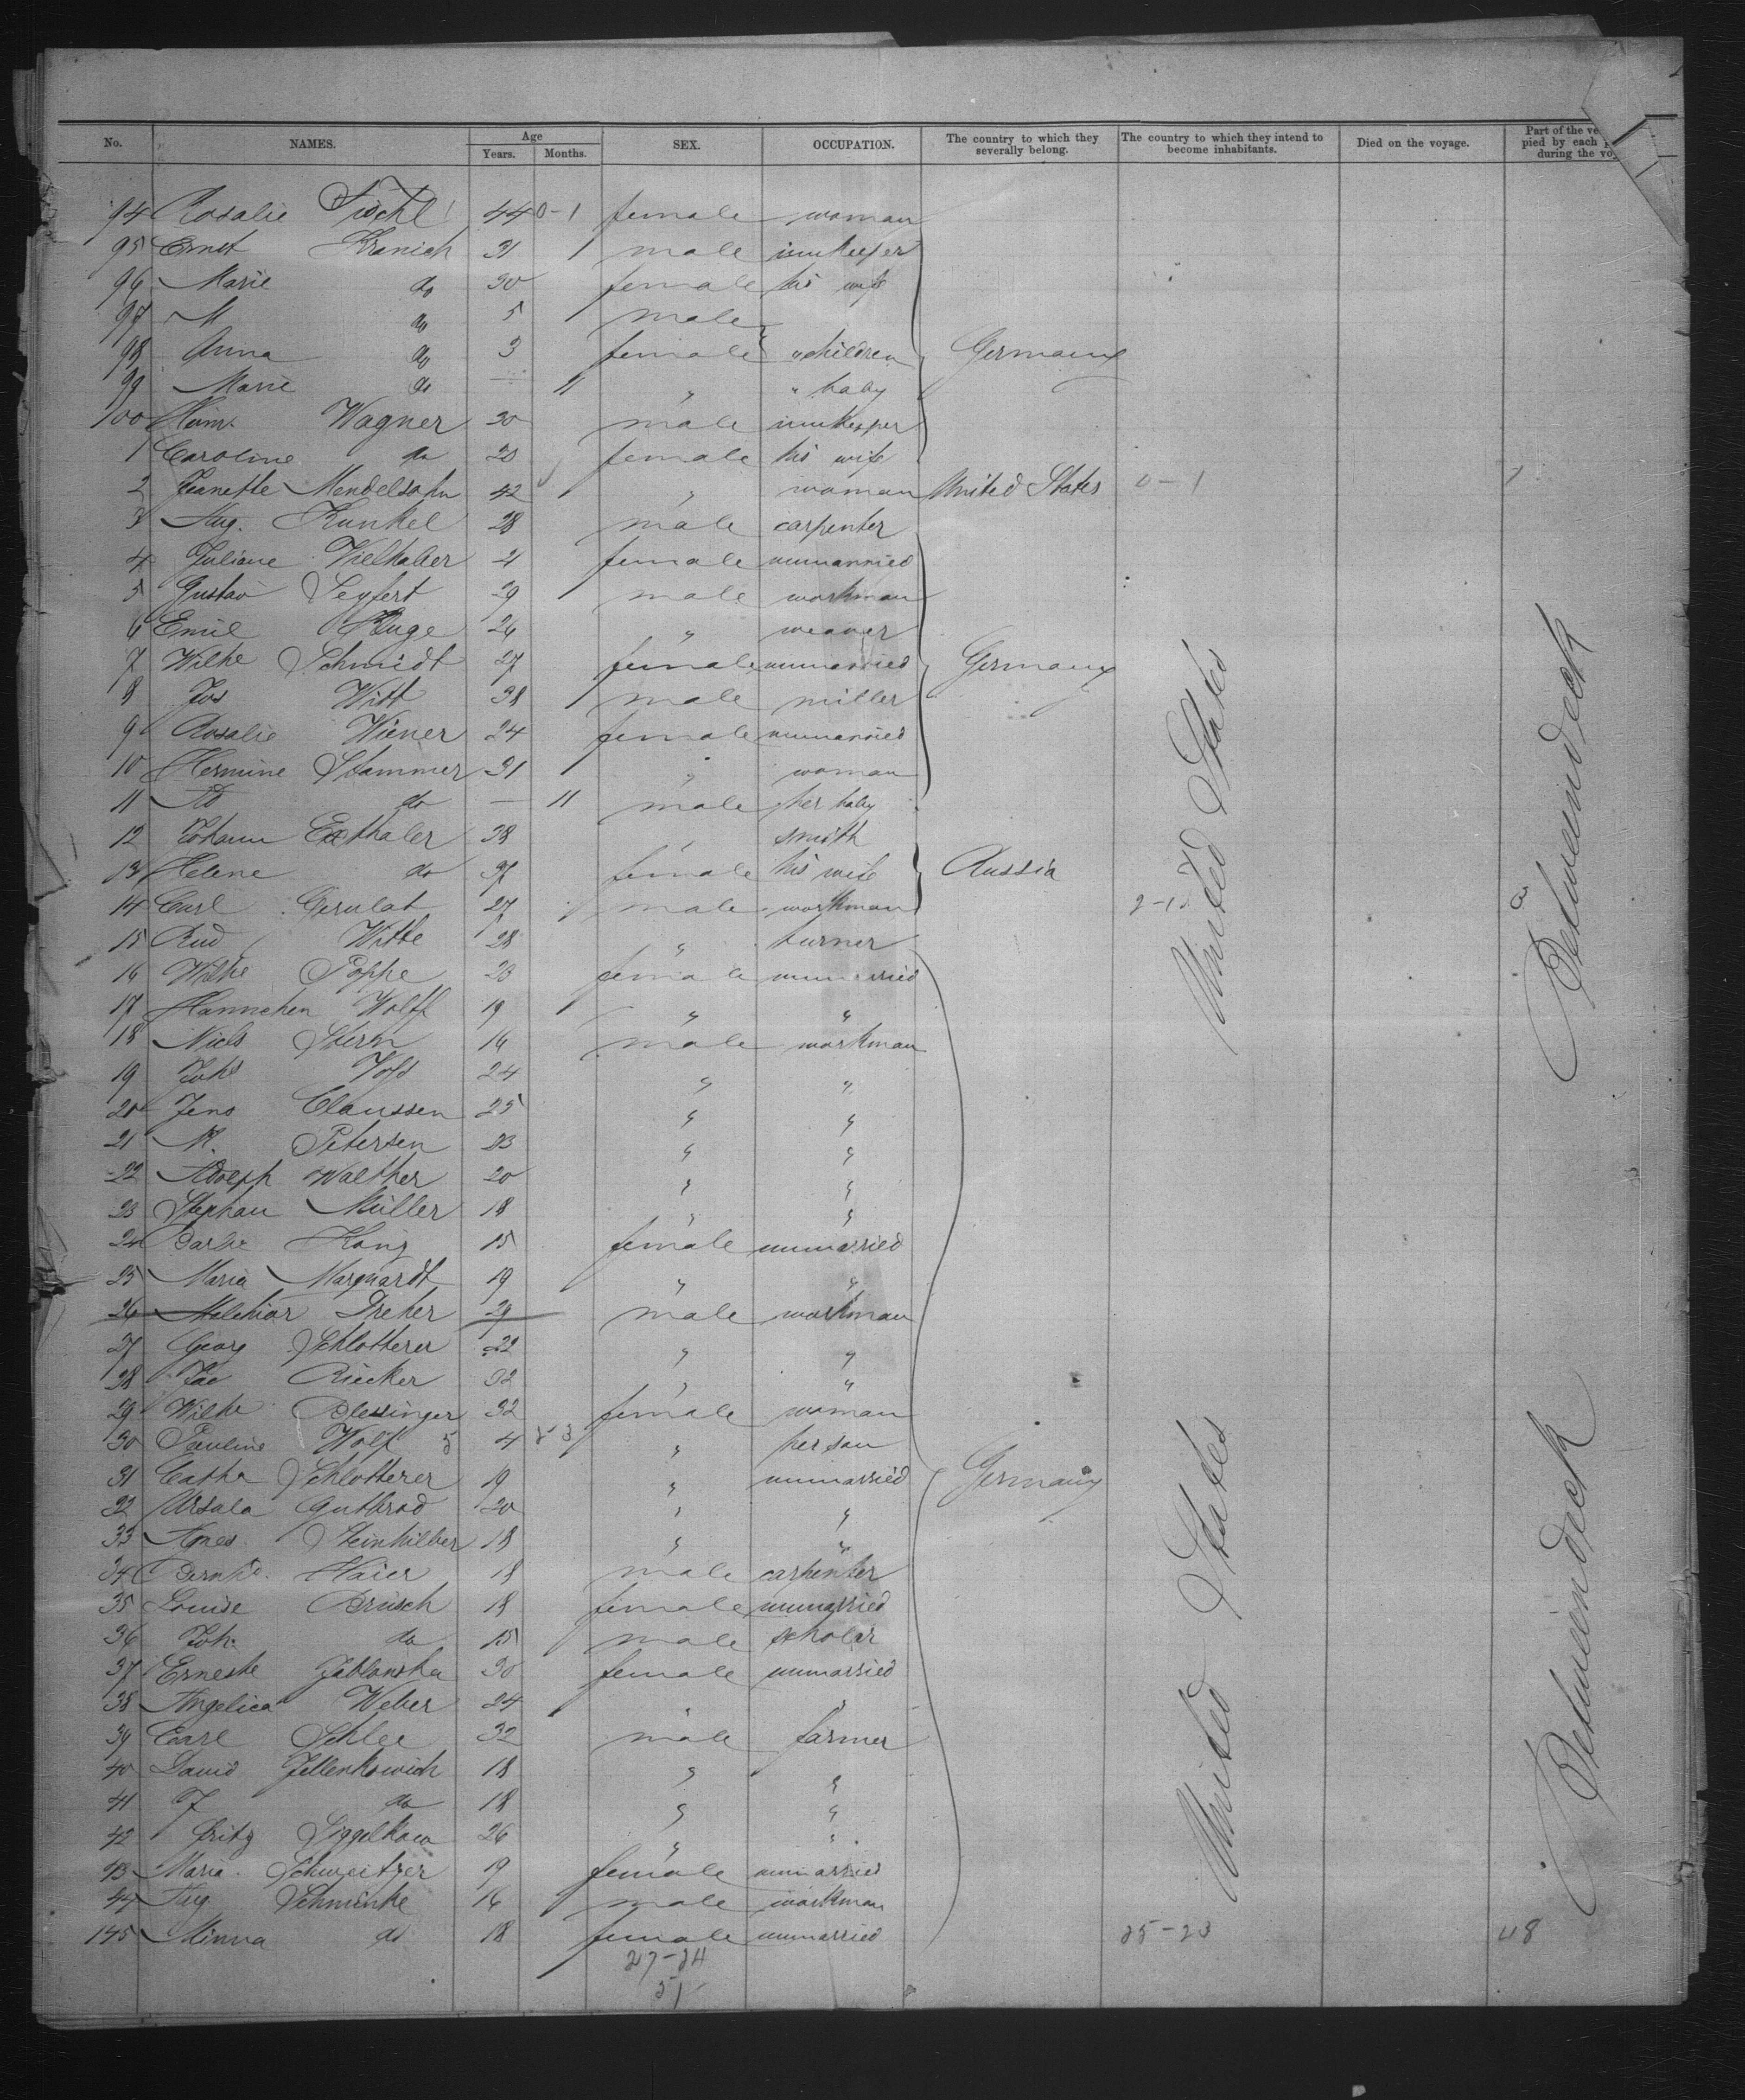 No. NAMES. Age Years. Months. SEX. OCCUPATION. The country to which they severally belong. The country to which they intend to become inhabitants. Died on the voyage. Part of the ve pied by each during the voy
94 Rosalie 44 0-1 female woman
95 Ernst Kranich 31 male innkeeper
96 Marie do 30 female his wife
97 M do 5 male
98 Anna do 3 female " children Germany
99 Marie do — 11 " " baby
100 Wagner 30 male innkeeper
1 Caroline do female his wife
2 Jeanette Mendelsohn 42 " woman United States 0-1 1
3 Aug. Kunkel 28 male carpenter
4 Juliane Vielhaber female unmarried
5 Gustav Seyfert 29 male workman
6 Emil 26 " weaver
7 Wilhe Schmidt 27 female unmarried Germany
8 Jos Witt 38 male miller
9 Rosalie Wiener 24 female unmarried
10 Hermine Stammer 31 " woman
11 Ad do — 11 male her baby
12 Johann 38 " smith
13 Helene do female his wife Russia
14 Carl Gerulat 27 male workman
15 Rud Witte 28 " turner
16 Wilhe Poppe 23 female unmarried
17 Hannchen Wolff 19 " "
18 Niels male workman
19 Johs 24 " "
20 Jens Claussen 25 " "
21 N. Petersen 23 " "
22 Adolph Walther 20 " "
23 Stephan Müller 18 " "
24 15 female unmarried
25 Maria Marquardt 19 " "
26 Melchior Dreher 29 male workman
27 Georg Schlotterer 22 " "
28 Jac Riecker 32 " "
29 Wilhe Blessinger 32 female woman
30 Pauline Wolf 4 " her son
31 Cathr Schlotterer 19 " unmarried Germany
32 Ursula Gutbrod 20 " "
33 Agnes Steinhilber 18 " "
34 Bernhd. Haier 18 male carpenter
35 Louise Brusch 18 female unmarried
36 Joh. do 15 male scholar
37 Erneste Jablonska 30 female unmarried
38 Angelica Weber 24 " "
39 Carl Schlee 32 male farmer
40 David Jellenkowich 18 " "
41 J do 18 " "
42 Fritz Siggelkow 26 " "
43 Maria Schweitzer 19 female unmarried
44 Aug. Schminke 16 male workman
145 Minna do 18 female unmarried 25-23 48
27-24
51
United States
Betweendeck
United States
Betweendeck